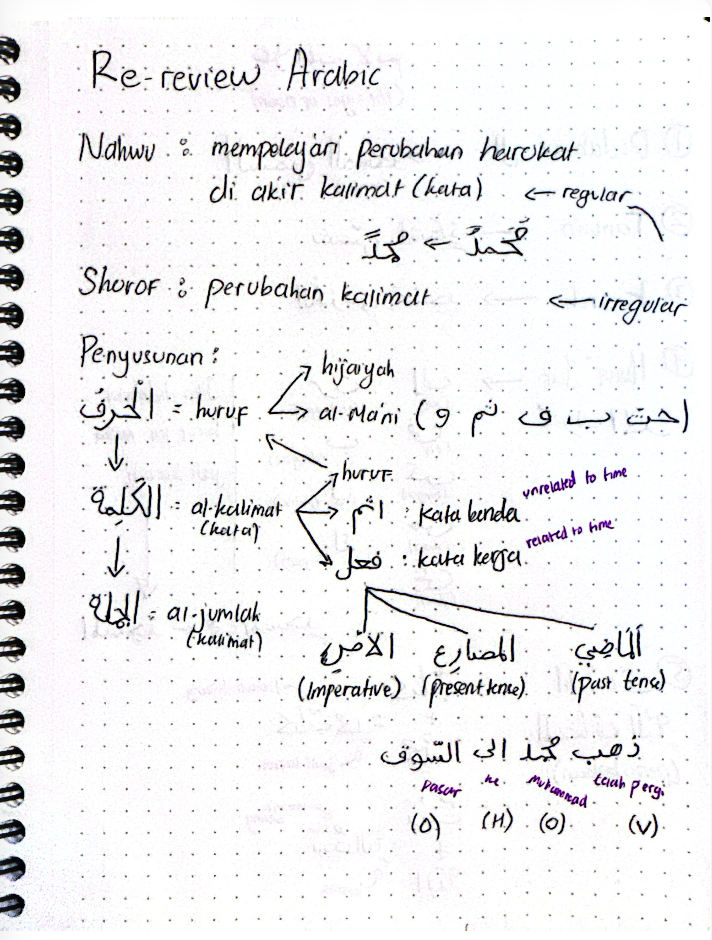 Re-review Arabic
Nahwu : mempelajari perubahan harokat
di akir kalimat (kata) ← regular
مُحمدٌ ← مُحمدًا
Shorof : perubahan kalimat ← irregular
Penyusunan :
hijaiyah
الْحَرفُ = huruf → al-Ma'ni (حتى ب ف ثم و)
huruf
الكَلِمة = al-kalimat اسم : kata benda unrelated to time
(kata)
فعل : kata kerja related to time
الجملة = al-jumlah
(kalimat)
الامْرِ المضارِع الْمَاضِي
(Imperative) (present tense) (past tense)
ذهب محمد الى السّوق
pasar ke Muhammad telah pergi
(O) (H) (O) (V)